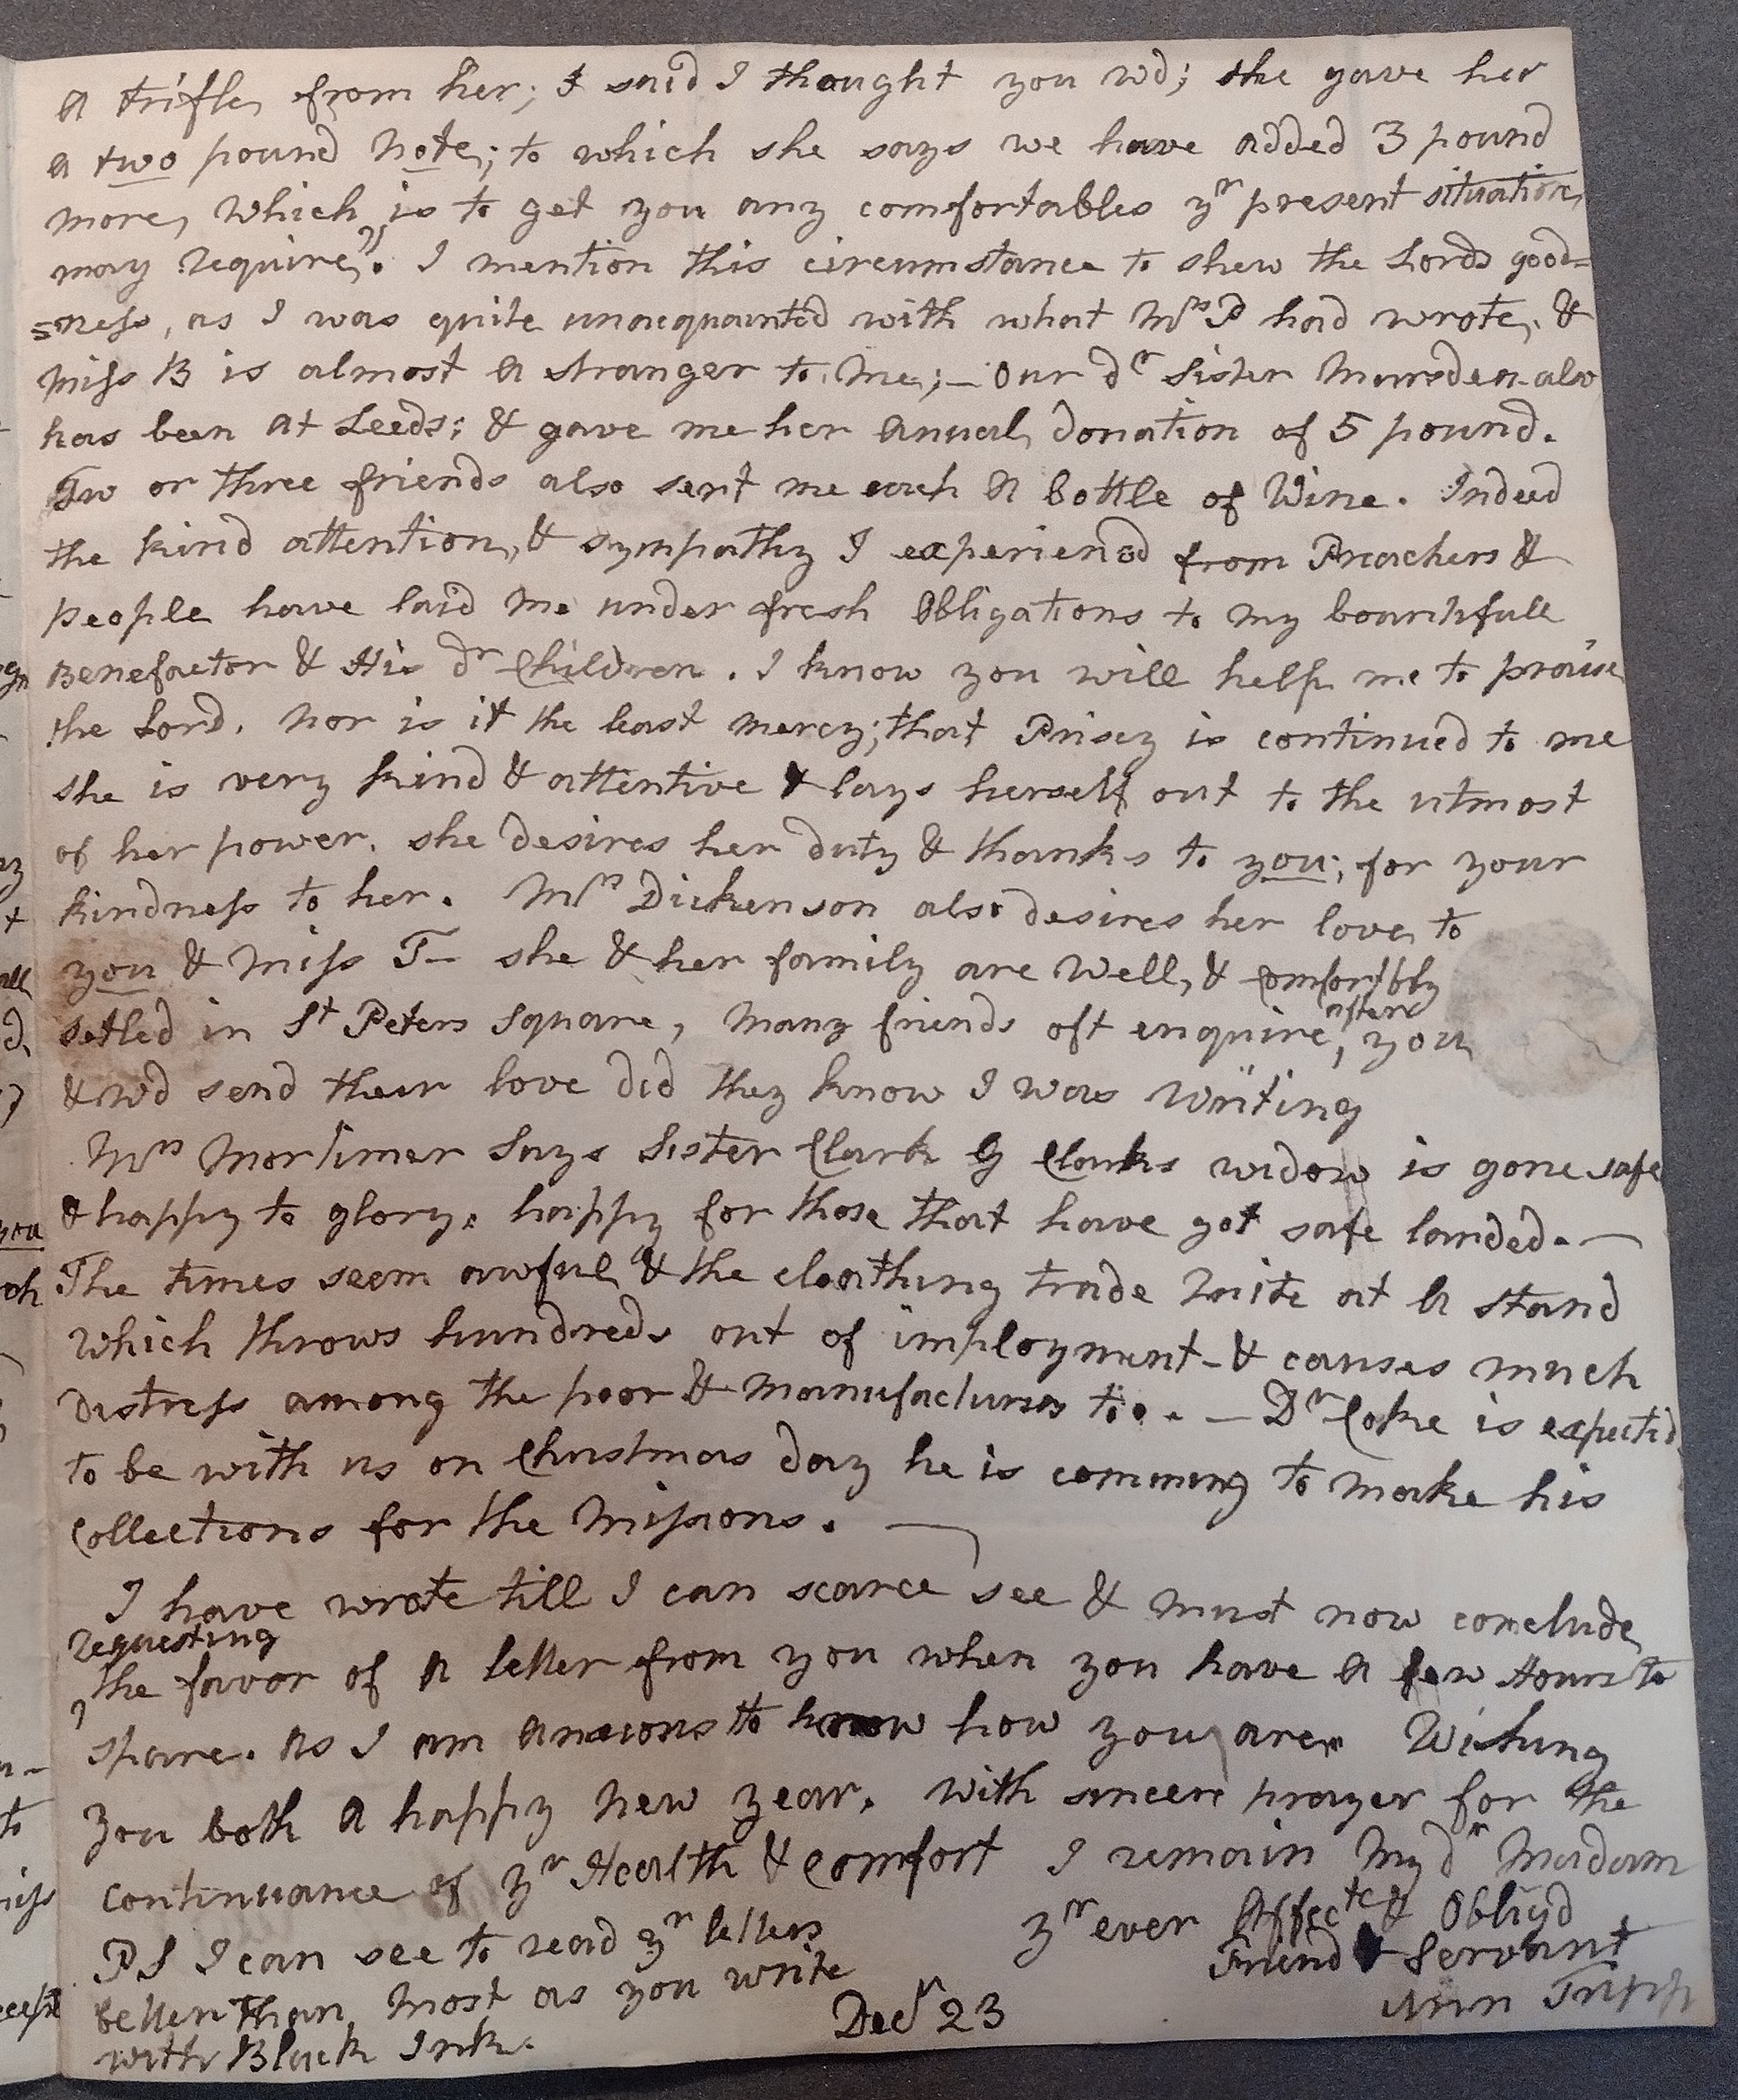 a trifle, from her; I said I thought you wd; she gave her
a two pound Note; to which she says we have added 3 pound
more, which is to get you any comfortables yr present situation
may require". I mention this circumstance to shew the Lords good=
=ness, as I was quite unacquainted with what Mrs P had wrote, &
Miss B is almost a stranger to me; — Our dr Sister Marsden also
has been at Leeds; & gave me her anual donation of 5 pound.
Tw or three friends also sent me each a bottle of Wine. Indeed
the kind attention, & sympathy I experienced from Preachers &
people have laid me under fresh obligations to my bountifull
Benefactor & His dr Children. I know you will help me to praise
the Lord. nor is it the least mercy; that Prisey is continued to me
she is very kind & attentive & lays herself out to the utmost
of her power. she desires her duty & thanks to you; for your
kindness to her. Mrs Dickenson also desires her love to
you & Miss T— she & her family are well, & comfortbly
setled in St Peters Square, many friends oft enquire after you
& wd send their love did they know I was writing
Mrs Mortimer says Sister Clark G Clarks widow is gone safe
& happy to glory. happy for those that have got safe landed. —
The times seem awful & the cloathing trade quite at a stand
which throws hundreds out of imployment - & causes much
distress among the poor & manufacturers too. — Dr Coke is expected
to be with us on Christmas day he is comming to make his
Collections for the Missions. —
I have wrote till I can scarce see & must now conclude
requesting
the favor of a letter from you when you have a few Hours to
spare. as I am anxious to know how you are. Wishing
you both a happy new year. with sincere prayer for the
continuance of yr Health & comfort I remain My dr Madam
yr ever Affecte & Obligd
Friend & Servant
Ann Tripp
PS I can see to read yr letters
better than most as you write
with Black Ink.
Decr 23